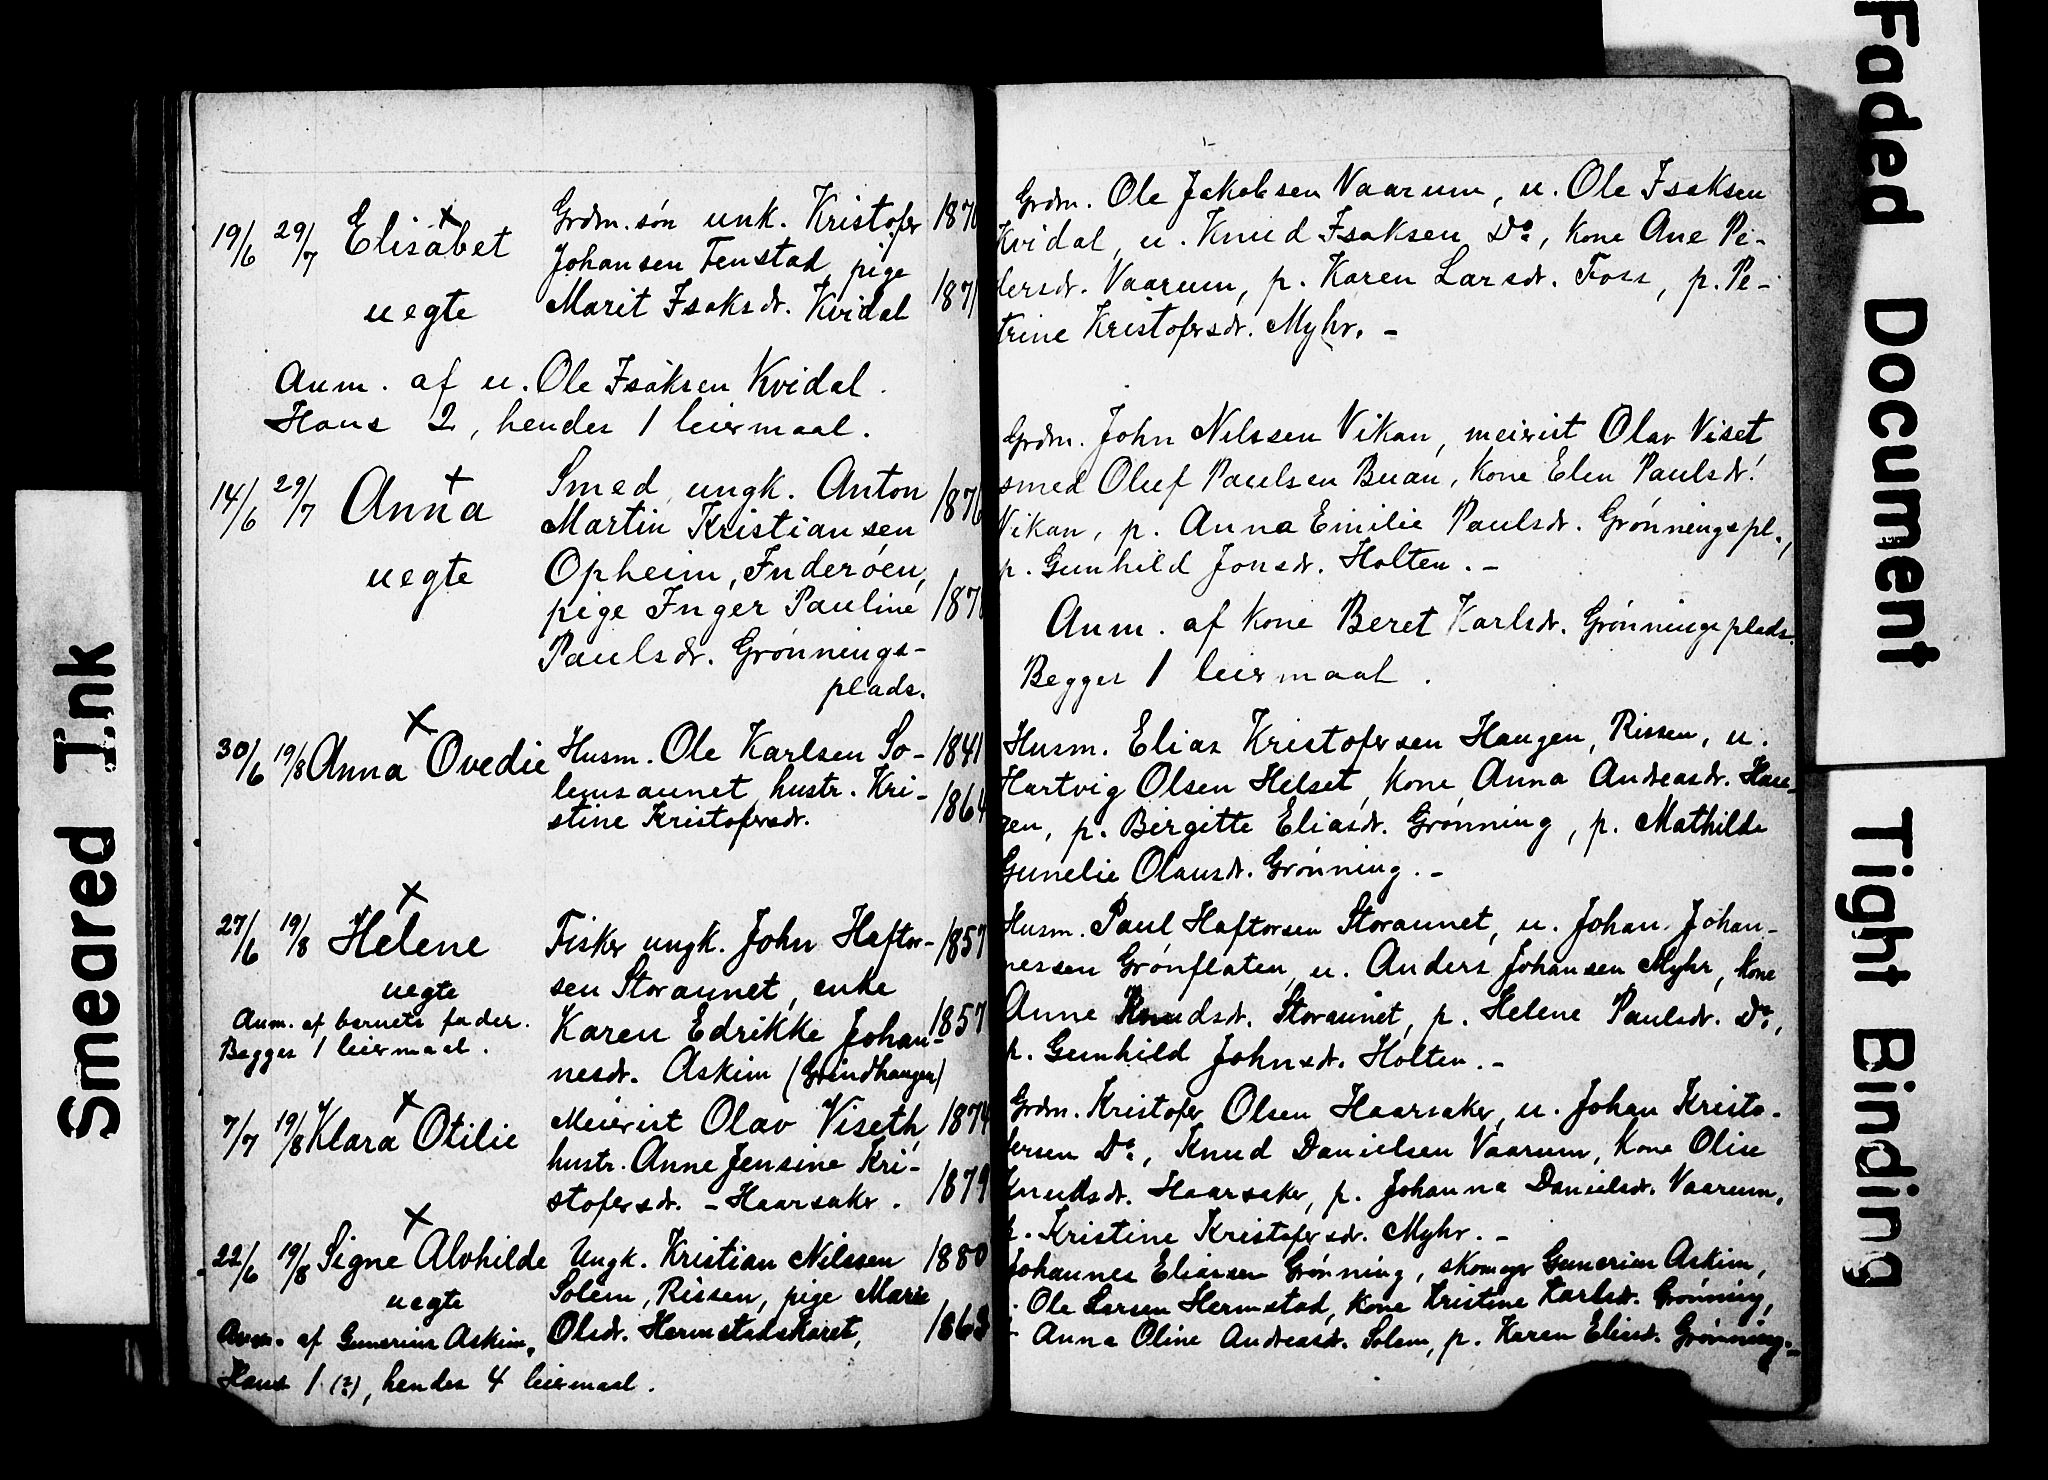 19/6 29/7 Elisabet
uegte
Grdm. søn unk. Kristofer
Johansen Fenstad, pige
Marit Isaksdr. Kvidal
Anm. af u. Ole Isaksen Kvidal.
Hans 2, hendes 1 leiermaal.
14/6 29/7 Anna
uegte
Smed, ungk. Anton 1876
Martin Kristiansen
Opheim, Inderøen,
pige Inger Pauline
Paulsdr. Grønnings-
plads.
30/6 19/8 Anna Ovedie
Husm. Ole Karlsen So- 1841
lemsaunet, hustr. Kri- 1864
stine Kristofersdr.
27/6 19/8 Helene
uegte
Anm. af barnets fader.
Begges 1 leiermaal.
Fisker ungk. John Haftor- 1857
sen Storaunet, enke
Karen Edrikke Johan- 1857
nesdr. Askim (Grindhaugen)
7/7 19/8 Klara Otilie
Meierist Olav Viseth, 1874
hustr. Anne Jensine Kri-
stofersdr. - Haarsaker. 1879
22/6 19/8 Signe Alvhilde
uegte
Anm. af Gunerius Askim,
Hans 1 (?), hendes 4 leiermaal.
Ungk. Kristian Nilssen 1880
Solem, Rissen, pige Marie
Olsdr. Hermstadskaret,
Grdm. Ole Jakobsen Vaarum, u. Ole Isaksen
Kvidal, u. Knud Isaksen Do., kone Ane Pe-
dersdr. Vaarum, p. Karen Larsdr. Foss, p. Pe-
trine Kristofersdr. Myhr. -
Grdm. John Nilssen Vikan, meierist Olav Viset,
smed Oluf Paulsen Buan, kone Elen Paulsdr.
Vikan, p. Anna Emilie Paulsdr. Grønningspl.,
p. Gunhild Jonsdr. Holten. -
Anm. af kone Beret Karlsdr. Grønningsplads.
Begges 1 leiermaal.
Husm. Elias Kristofersen Haugen, Rissen, u.
Hartvig Olsen Helset, kone Anna Andreasdr. Hau-
gen, p. Birgitte Eliasdr. Grønning, p. Mathilde
Gunelie Olausdr. Grønning. -
Husm. Paul Haftorsen Storaunet, u. Johan Johan-
nessen Grønflaten, u. Anders Johansen Myhr, kone
Anne Knudsdr. Storaunet, p. Helene Paulsdr. Do.,
p. Gunhild Johnsdr. Holten. -
Grdm. Kristofer Olsen Haarsaker, u. Johan Kristo-
fersen Do., Knud Danielsen Vaarum, kone Olise
Knudsdr. Haarsaker, p. Johanna Danielsdr. Vaarum,
p. Kristine Kristofersdr. Myhr. -
Johannes Eliassen Grønning, skomager Gunerius Askim,
Ole Larsen Hermstad, kone Kristine Karlsdr. Grønning,
Anna Oline Andreasdr. Solem, p. Karen Eliasdr. Grønning. -
Smeared Ink
Faded Document
Tight Binding